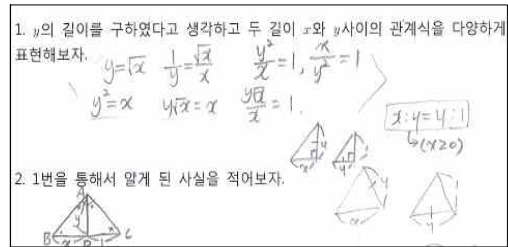 1. y의 길이를 구하였다고 생각하고 두 길이 x와 y사이의 관계식을 다양하게
표현해보자.
y=√x 1/y=√x/x y²/x=1, x/y²=1
y²=x y√x=x y√x/x=1.
x:y=y:1
↳(x≥0)
x y 1 y 1
2. 1번을 통해서 알게 된 사실을 적어보자.
A
y
B x D 1 C
x y 1 y 1